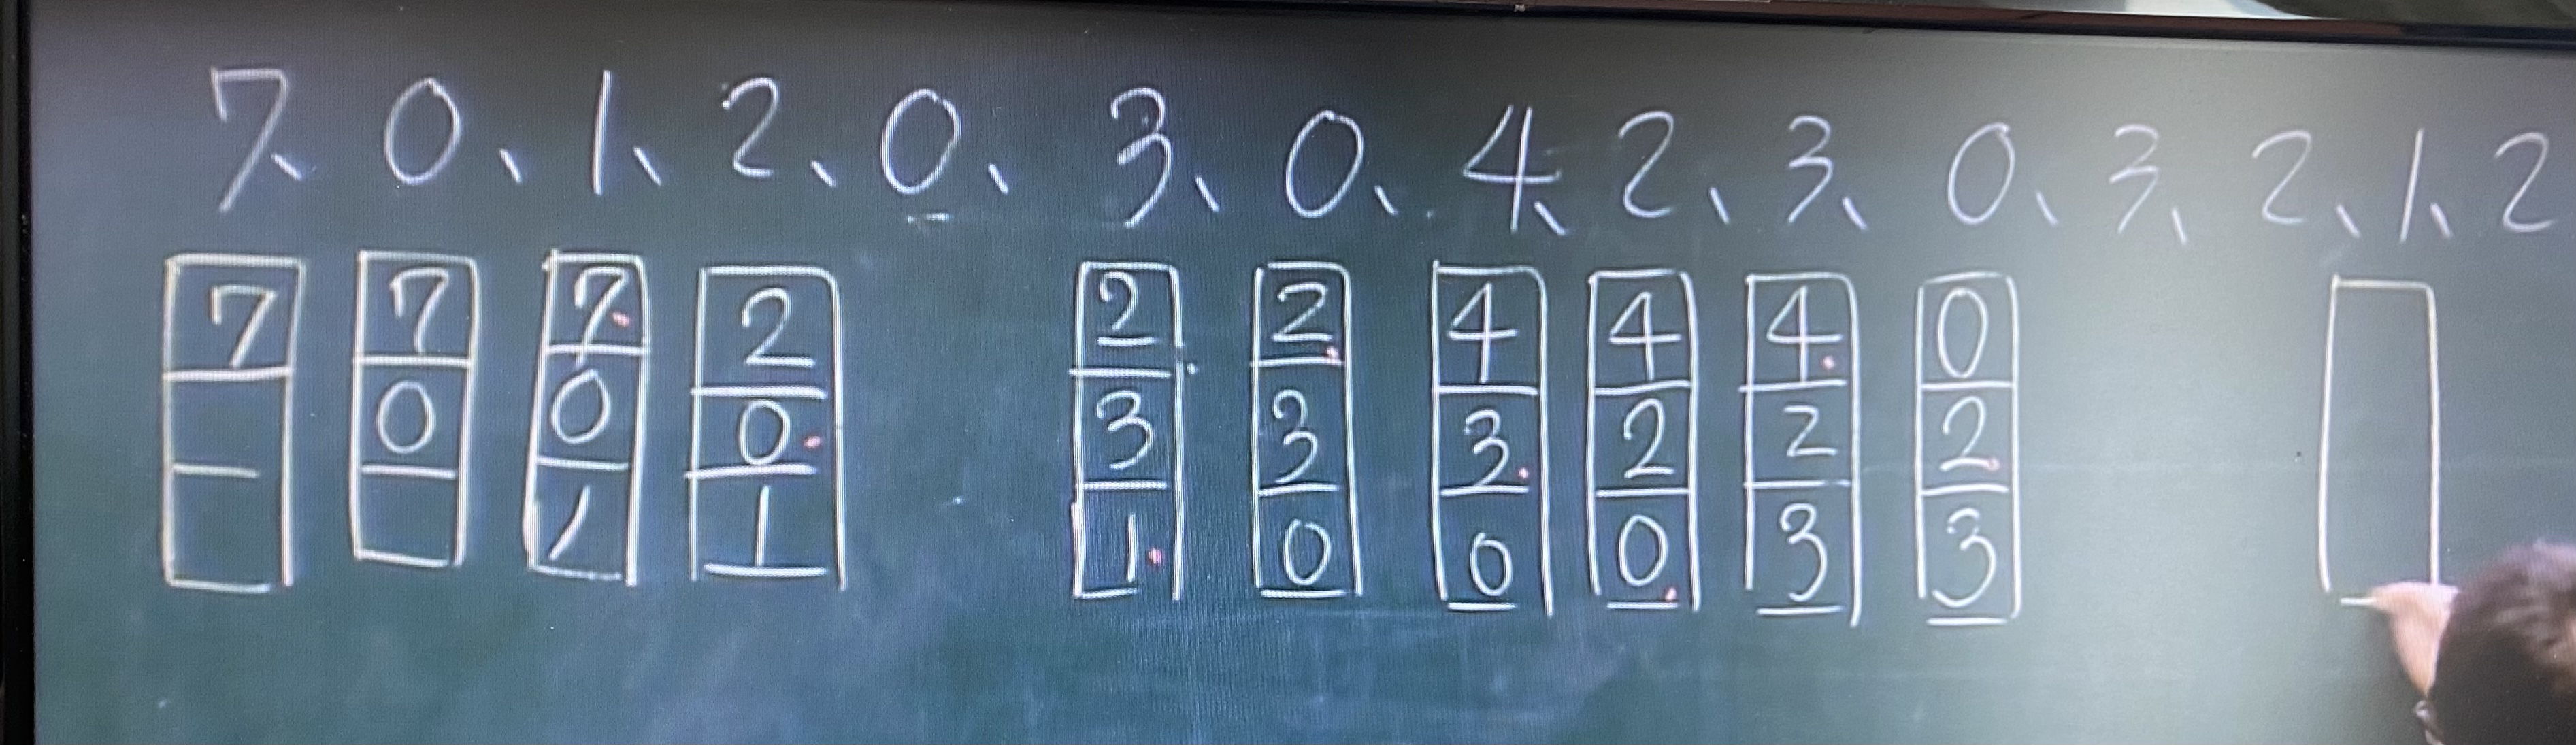 7、0、1、2、0、3、0、4、2、3、0、3、2、1、2
7 7 7 2 2 2 4 4 4 0
0 0 0 3 3 3 2 2 2
1 1 1 0 0 0 3 3